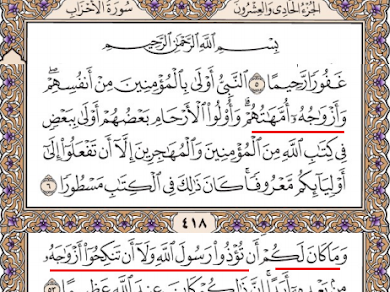 الجُزْءُ الحَادِى وَالعِشْرُونَ سُورَةُ الأَحْزَابِ
بِسْمِ اللَّهِ الرَّحْمَٰنِ الرَّحِيمِ
غَفُورًا رَّحِيمًا ٥ ٱلنَّبِىُّ أَوْلَىٰ بِٱلْمُؤْمِنِينَ مِنْ أَنفُسِهِمْ ۖ
وَأَزْوَٰجُهُۥٓ أُمَّهَٰتُهُمْ ۗ وَأُو۟لُوا۟ ٱلْأَرْحَامِ بَعْضُهُمْ أَوْلَىٰ بِبَعْضٍ
فِى كِتَٰبِ ٱللَّهِ مِنَ ٱلْمُؤْمِنِينَ وَٱلْمُهَٰجِرِينَ إِلَّآ أَن تَفْعَلُوٓا۟ إِلَىٰٓ
أَوْلِيَآئِكُم مَّعْرُوفًا ۚ كَانَ ذَٰلِكَ فِى ٱلْكِتَٰبِ مَسْطُورًا ٦
٤١٨
وَمَا كَانَ لَكُمْ أَن تُؤْذُوا۟ رَسُولَ ٱللَّهِ وَلَآ أَن تَنكِحُوٓا۟ أَزْوَٰجَهُۥ
مِنۢ بَعْدِهِۦٓ أَبَدًا ۚ إِنَّ ذَٰلِكُمْ كَانَ عِندَ ٱللَّهِ عَظِيمًا ٥٣